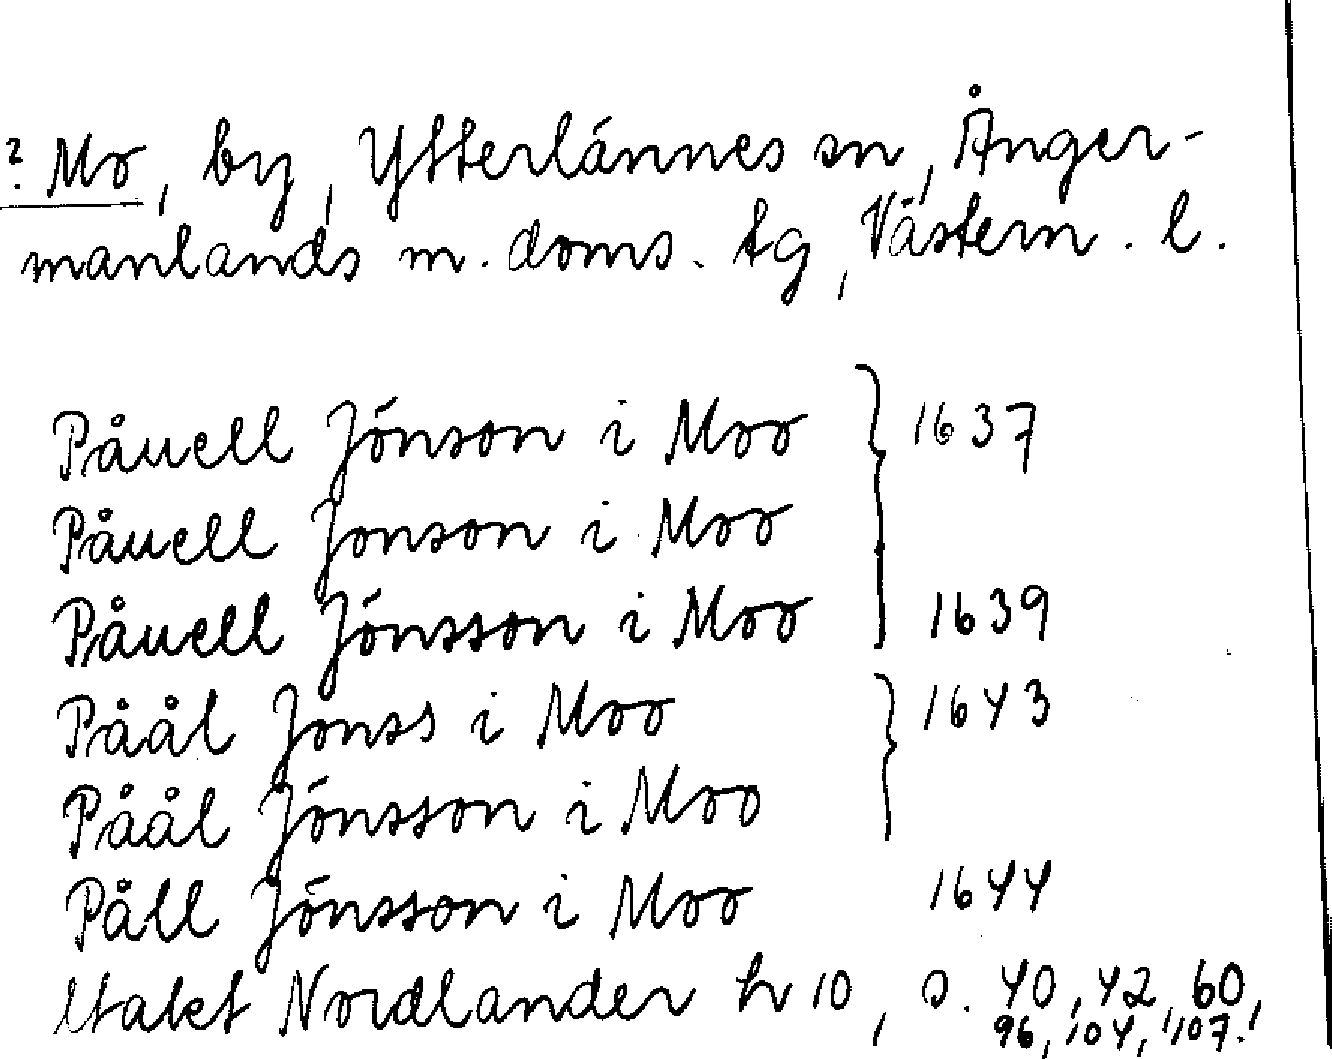 ? Mo, by, Ytterlännes sn, Ånger-
manlands m. doms. tg, Västern. l.
Påuell Jönson i Moo } 1637
Påuell Jonson i Moo
Påuell Jönsson i Moo 1639
Påål Jonss i Moo } 1643
Påål Jönsson i Moo
Påll Jönsson i Moo 1644
Utakt Nordlander hv 10, s. 40, 42, 60,
96, 104, 107.